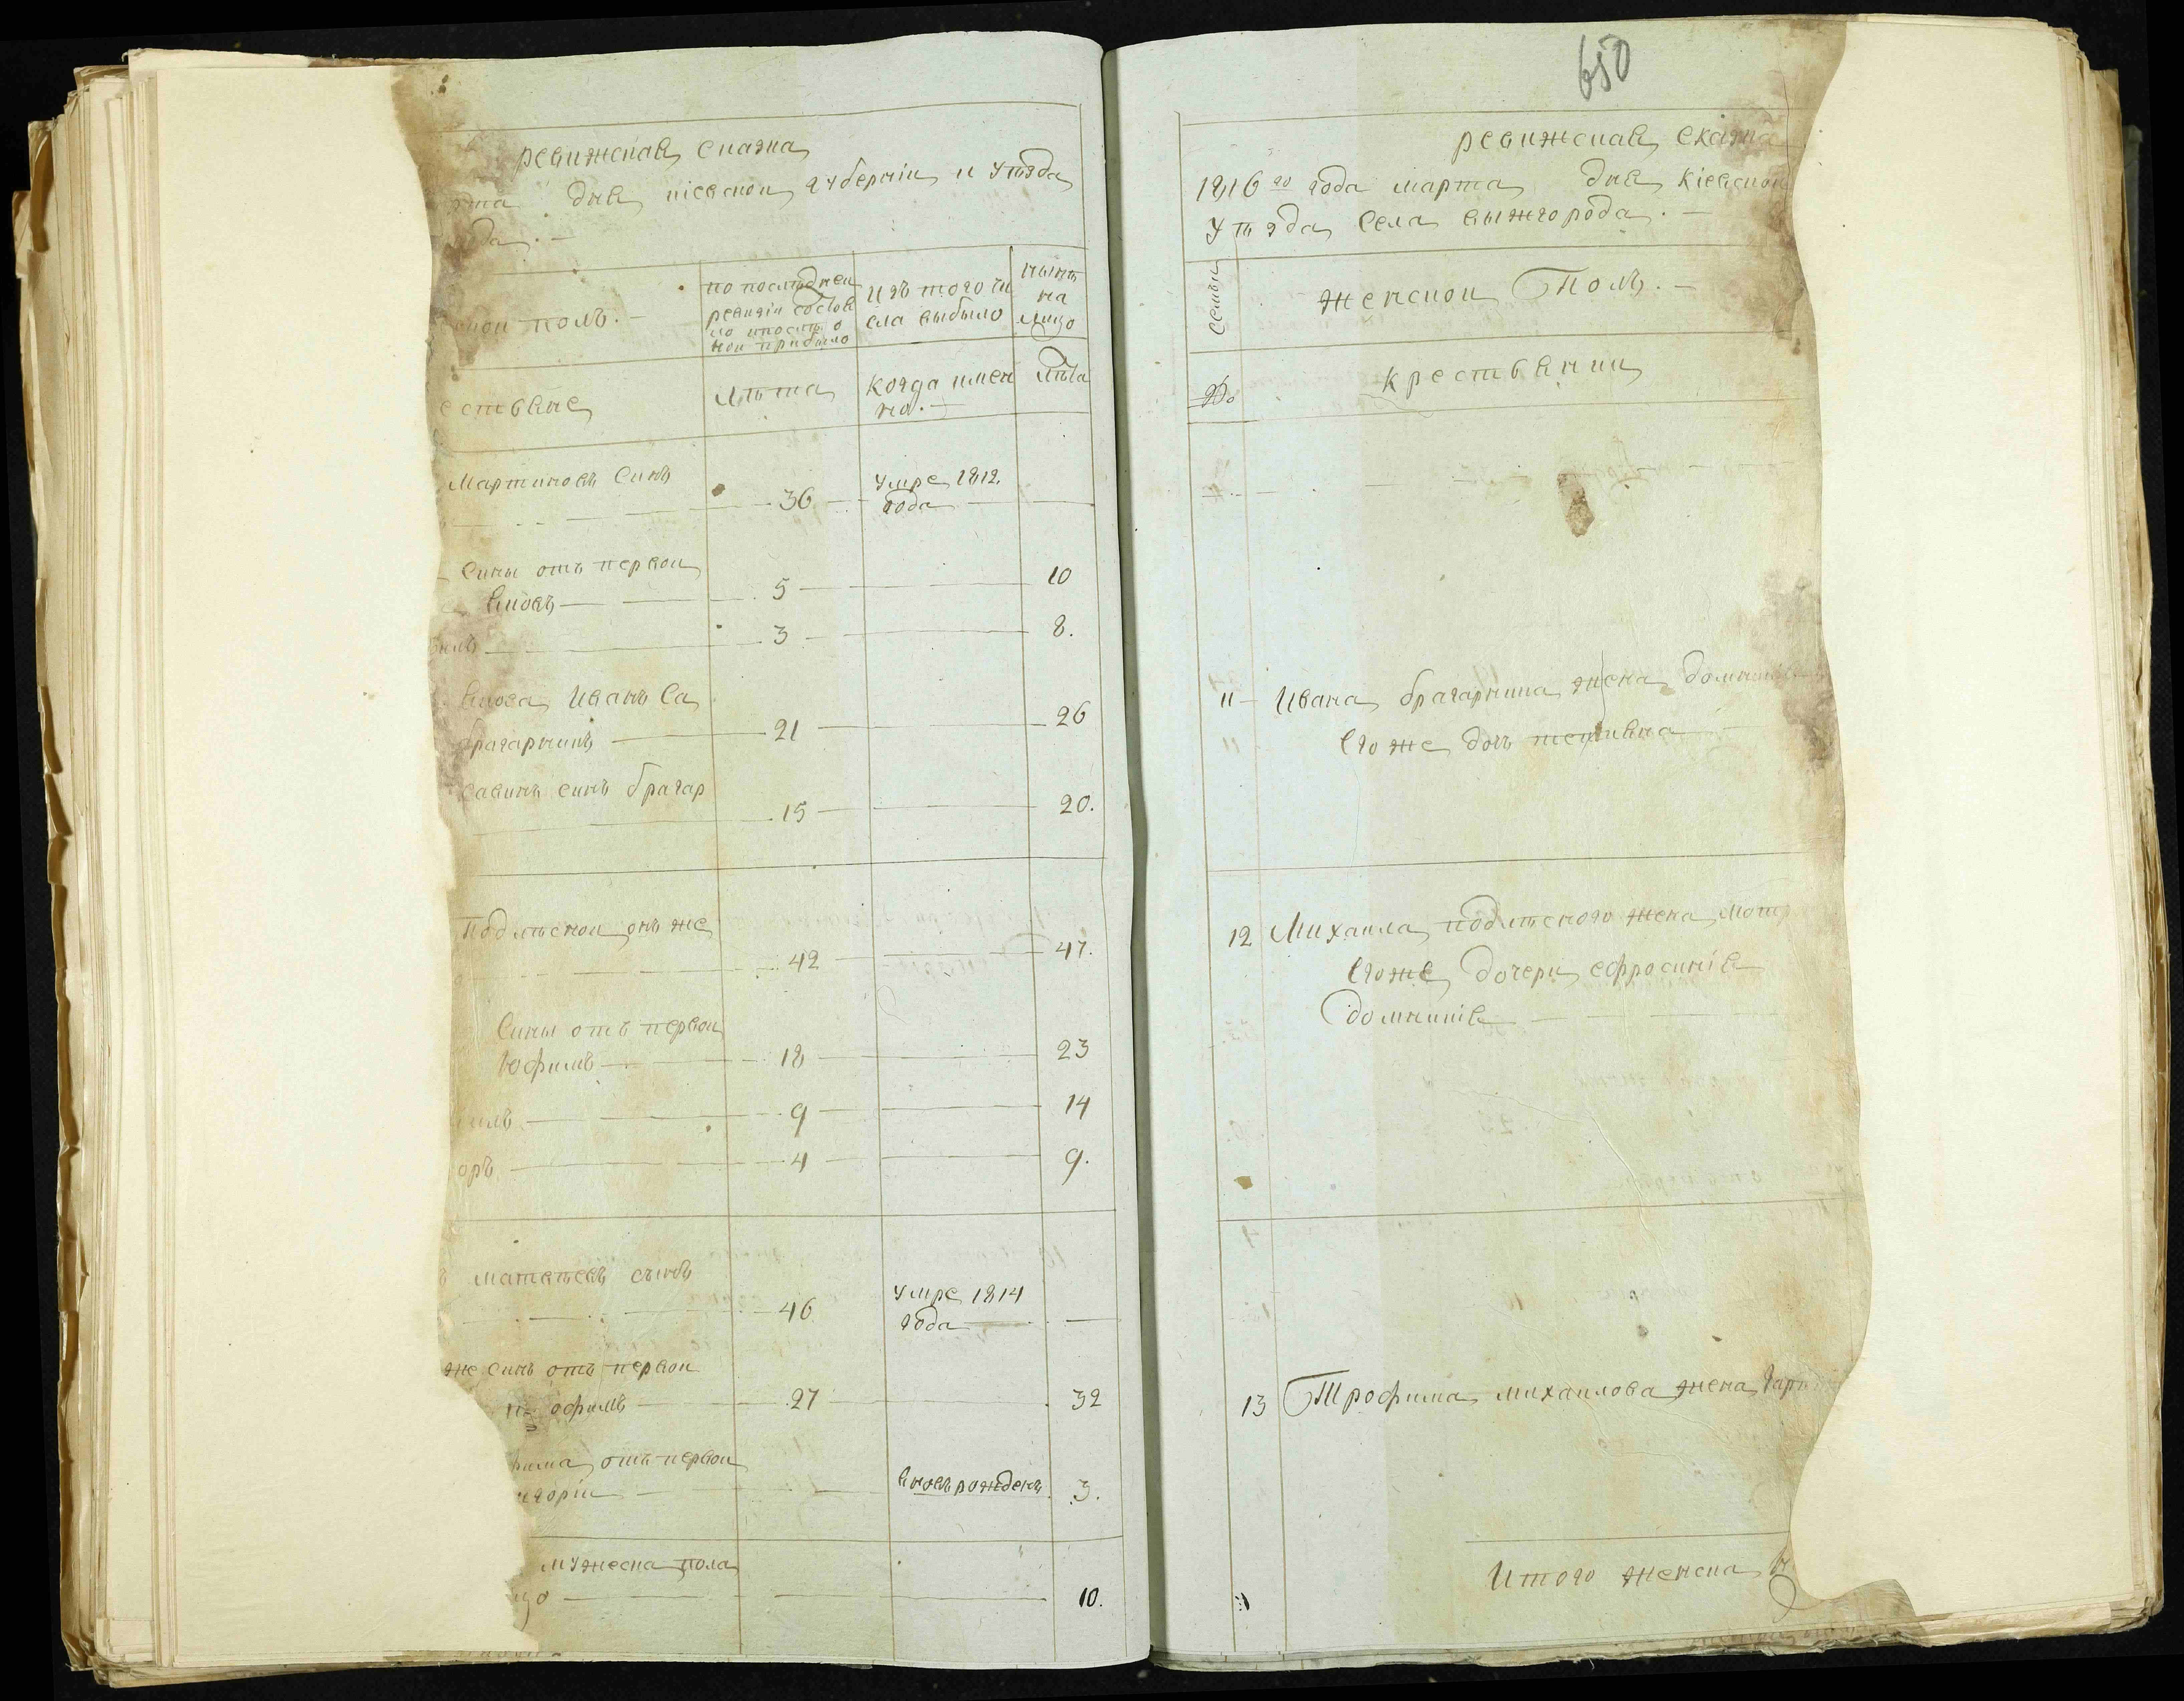 ревижская сказка
дня кіевской губерніи и уѣзда
да. —
ской полъ. —
по последней
ревизіи состоя
ло и после о
ной прибыло
изъ того чи
сла выбыло
нынѣ
на
лицо
естьяне
лѣта
когда имен
но. —
лѣта
Мартиновъ синъ
36
умре 1812
года
сины отъ первой
Яковъ 5 10
3 8.
Якова Иванъ Са
брагарникъ 21 26
Савинъ синъ брагар
15 20.
Подлѣской онъ же
42 47.
Сины отъ первой
Юфимъ 18 23
илъ 9 14
оръ 4 9.
матвѣевъ сынъ
46
умре 1814
года
же синъ отъ первой
офимъ 27 32
фима отъ первой
игорій вновьрожденъ 3.
мужеска пола
цо 10.
650
ревижская сказка
1816 го года марта дня кіевской
уѣзда села выжгорода. —
семьи
женской Полъ. —
№
крестьянки
11 Ивана брагарника жена домникія
его же дочь
12 Михаила подлѣского жена мотр
его же дочери ефросинія
домникія
13 Трофима михаилова жена
Итого женска